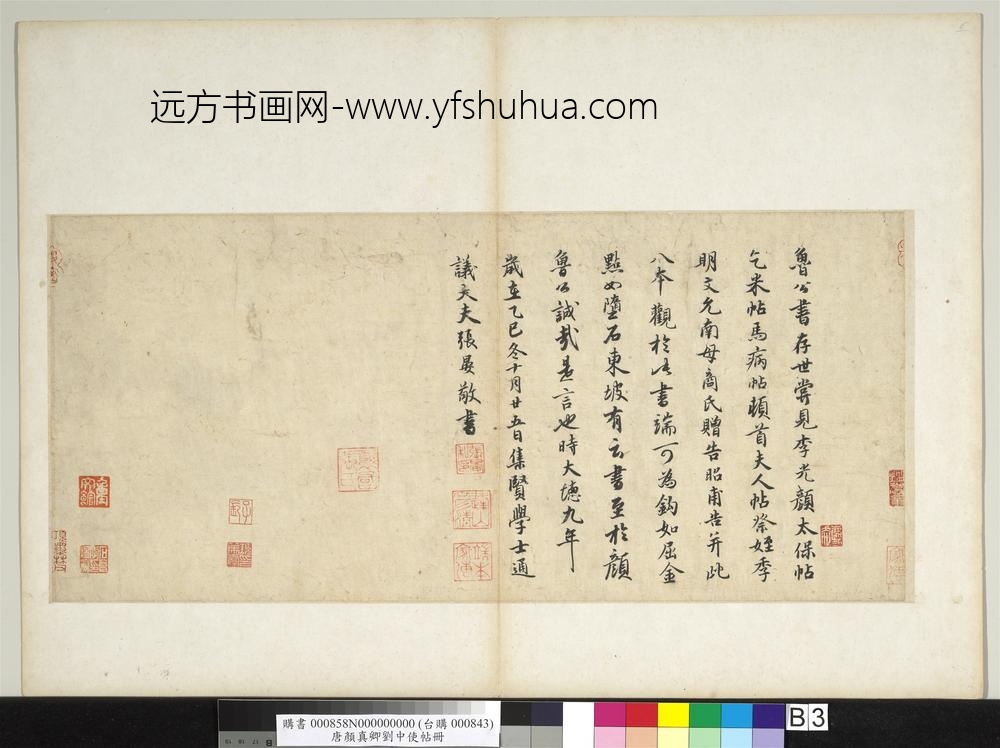 远方书画网-www.yfshuhua.com
魯公書存世嘗見李光顏太保帖
乞米帖馬病帖頓首夫人帖祭姪季
明文允南母商氏贈告昭甫告并此
八本觀於此書端可為鉤如屈金
點如墮石東坡有云書至於顏
魯公誠哉是言也時大德九年
歲在乙巳冬十月廿五日集賢學士通
議大夫張晏敬書
購書 000858N000000000 (台購 000843)
唐顏真卿劉中使帖冊
B 3